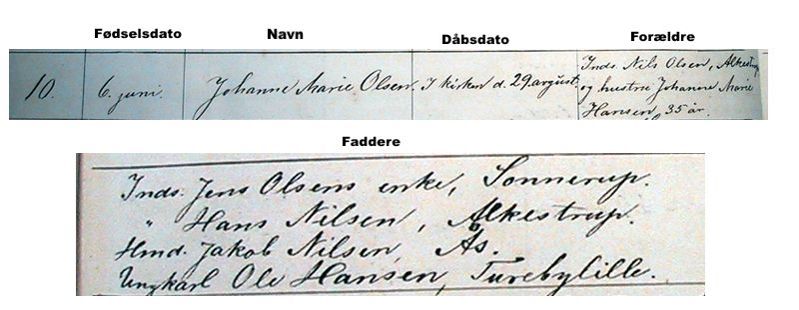 Fødselsdato Navn Dåbsdato Forældre
10. 6. juni. Johanne Marie Olsen. I kirken d. 29 avgust.
Inds. Nils Olsen, Alkestrup
og hustru Johanne Marie
Hansen, 35 år.
Faddere
Inds. Jens Olsens enke, Sonnerup.
" Hans Nilsen, Alkestrup.
Hmd. Jakob Nilsen, Ås.
Ungkarl Ole Hansen, Turebylille.